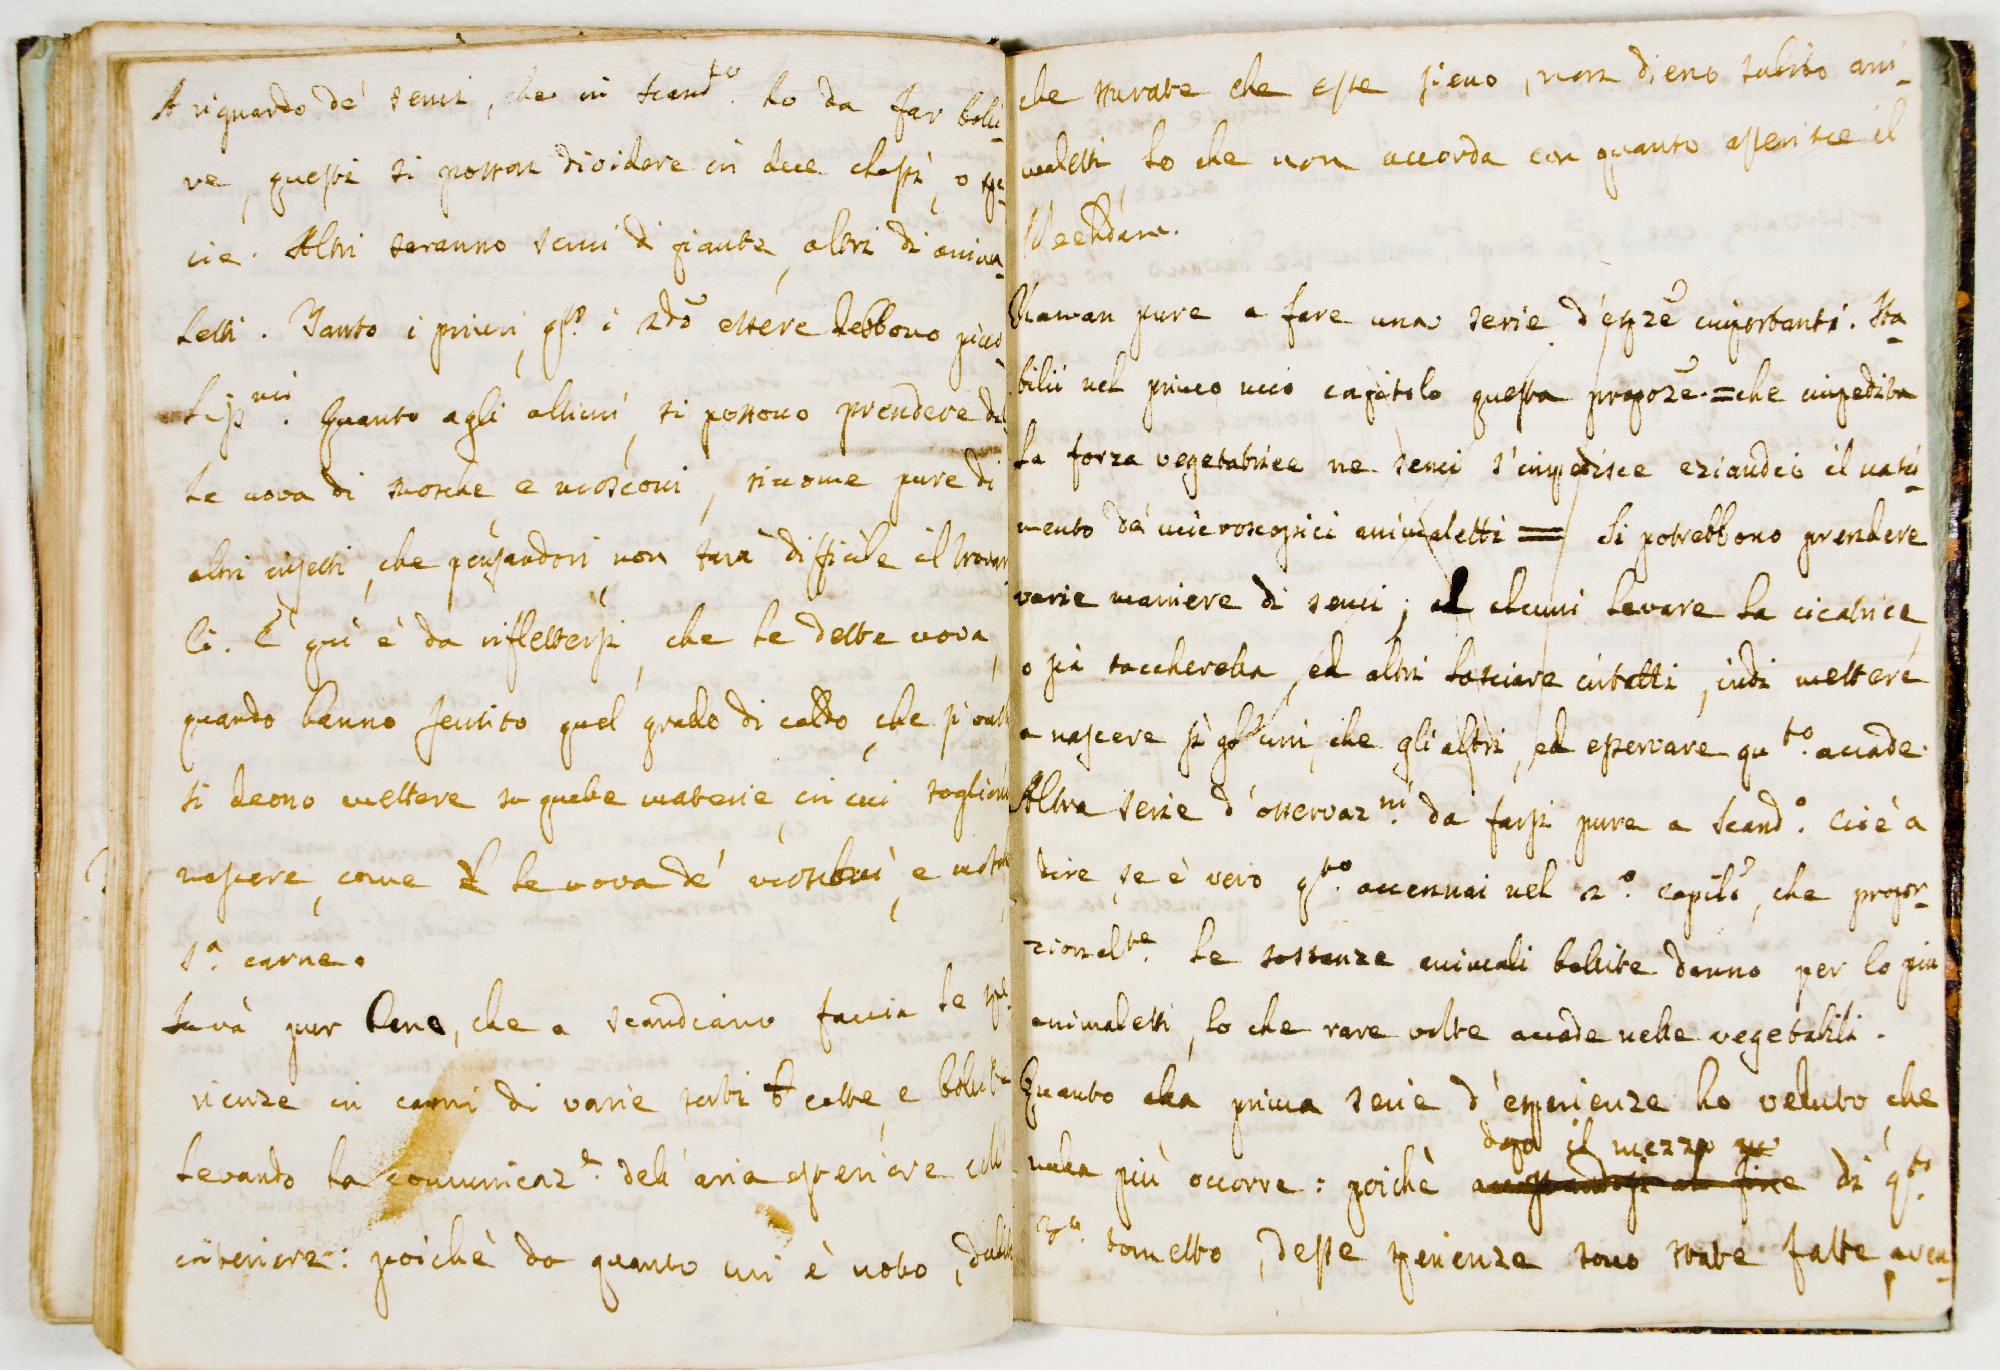 A riguardo de' semi, che in Scand.to ho da far bolli-
re, questi si posson dividere in due classi, o spe-
cie. Altri saranno semi di piante, altri di anima-
letti. Tanto i primi, q.to i 2di essere debbono picco-
liss.mi. Quanto agli ultimi, si possono prendere dal-
le uova di mosche e mosconi, siccome pure di
altri insetti, che pensandovi non sarà difficile il trovar-
li. E quì è da riflettersi, che le dette uova,
quando hanno sentito quel grado di caldo, che si vuole
si deono mettere su quelle materie, in cui sogliono
nascere, come le uova de' mosconi, e mosche
s.a carne.
Sarà pur bene, che a Scandiano faccia le spe-
rienze in carni di varie sorti cotte, e bollite
levando la comunicaz.e dell'aria esteriore coll'
interiore: poichè da quanto mi è noto, dubito
che murate che esse sieno, non dieno subito ani-
maletti, lo che non accorda con quanto asserisce il
Needdam.
Havvan pure a fare una serie d'esp.ze importanti. Sta-
bilii nel primo mio capitolo questa propoz.e = che impedita
la forza vegetatrice ne semi s'impedisce eziandio il nasci-
mento da' microscopici animaletti = Si potrebbono prendere
varie maniere di semi; ad alcuni levare la cicatrice,
o sia zaccherella, ed altri lasciare intatti, indi mettere
a nascere sì gl'uni, che gli altri, ed osservare qu.to accade.
Altra serie d'osservaz.ni da farsi pure a Scand.o cioè a
dire, se è vero q.to accennai nel 2.o capitlo, che propor-
zionalte. le sostanze animali bollite danno per lo più
animaletti, lo che rare volte accade nelle vegetabili.
Quanto alla prima serie d'esperienze ho veduto, che
dopo il mezzo
nulla più occorre: poichè di q.to
tometto, desse sperienze sono state fatte, aven-